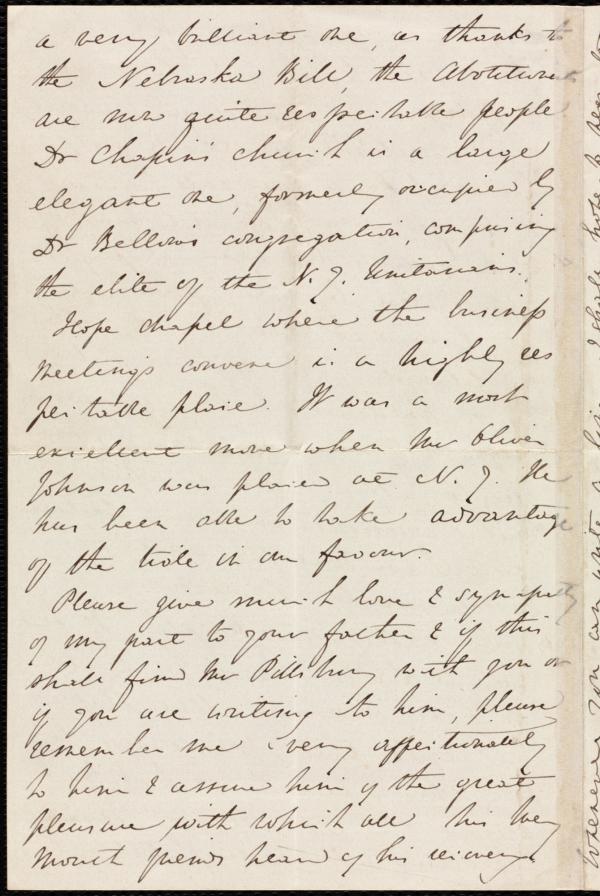 a very brilliant one, as thanks to
the Nebraska Bill, the Abolitionists
are now quite respectable people
Dr Chapin's church is a large
elegant one, formerly occupied by
Dr Bellows congregation, comprising
the elite of the N. Y. Unitarians.
Hope chapel where the business
meetings convene is a highly res
pectable place. It was a most
excellent move when Mr Oliver
Johnson was placed at N. Y. He
has been able to take advantage
of the tide in our favour.
Please give much love & sympathy
of my part to your father & if this
shall find Mr Pillsbury with you or
if you are writing to him, please
remember me very affectionately
to him & assure him of the great
pleasure with which all his Wey
mouth friends hear of his recovery.
Whenever you can write a line I shall hope to